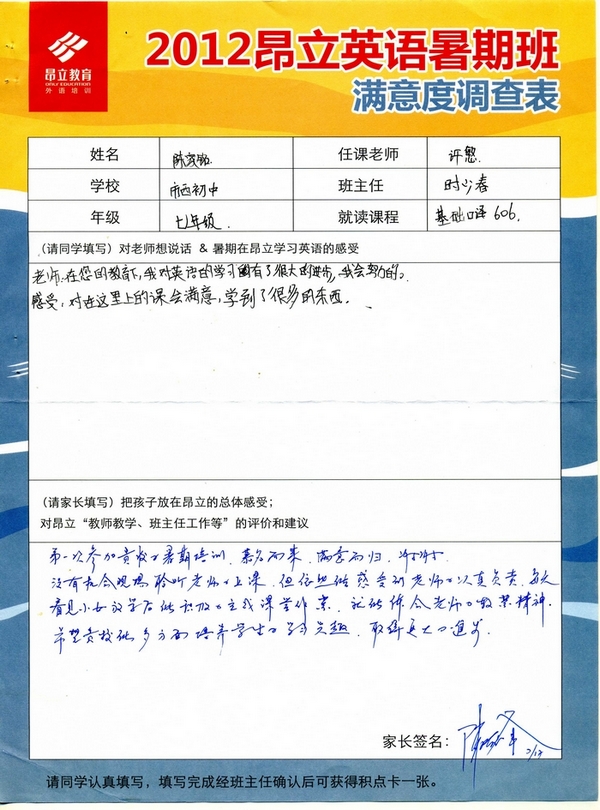 昂立教育
ONLY EDUCATION
外语培训
2012昂立英语暑期班
满意度调查表
姓名
任课老师
学校 市西初中 班主任 时少春
年级 七年级 就读课程 基础口译606.
(请同学填写)对老师想说话 & 暑期在昂立学习英语的感受
老师,在您的教育下,我对英语的学习有了很大的进步,我会努力的。
感受:对在这里上的课会满意,学到了很多的东西.
(请家长填写)把孩子放在昂立的总体感受;
对昂立“教师教学、班主任工作等”的评价和建议
第一次参加贵校的暑期培训,慕名而来,满意而归,谢谢.
没有机会现场聆听老师的上课,但依然能感受到老师的认真负责,每天
看见小女放学后能积极的完成课堂作业,就能体会老师的敬业精神.
希望贵校能多方面培养学生的学习兴趣,取得更大的进步.
家长签名:
请同学认真填写,填写完成经班主任确认后可获得积点卡一张。